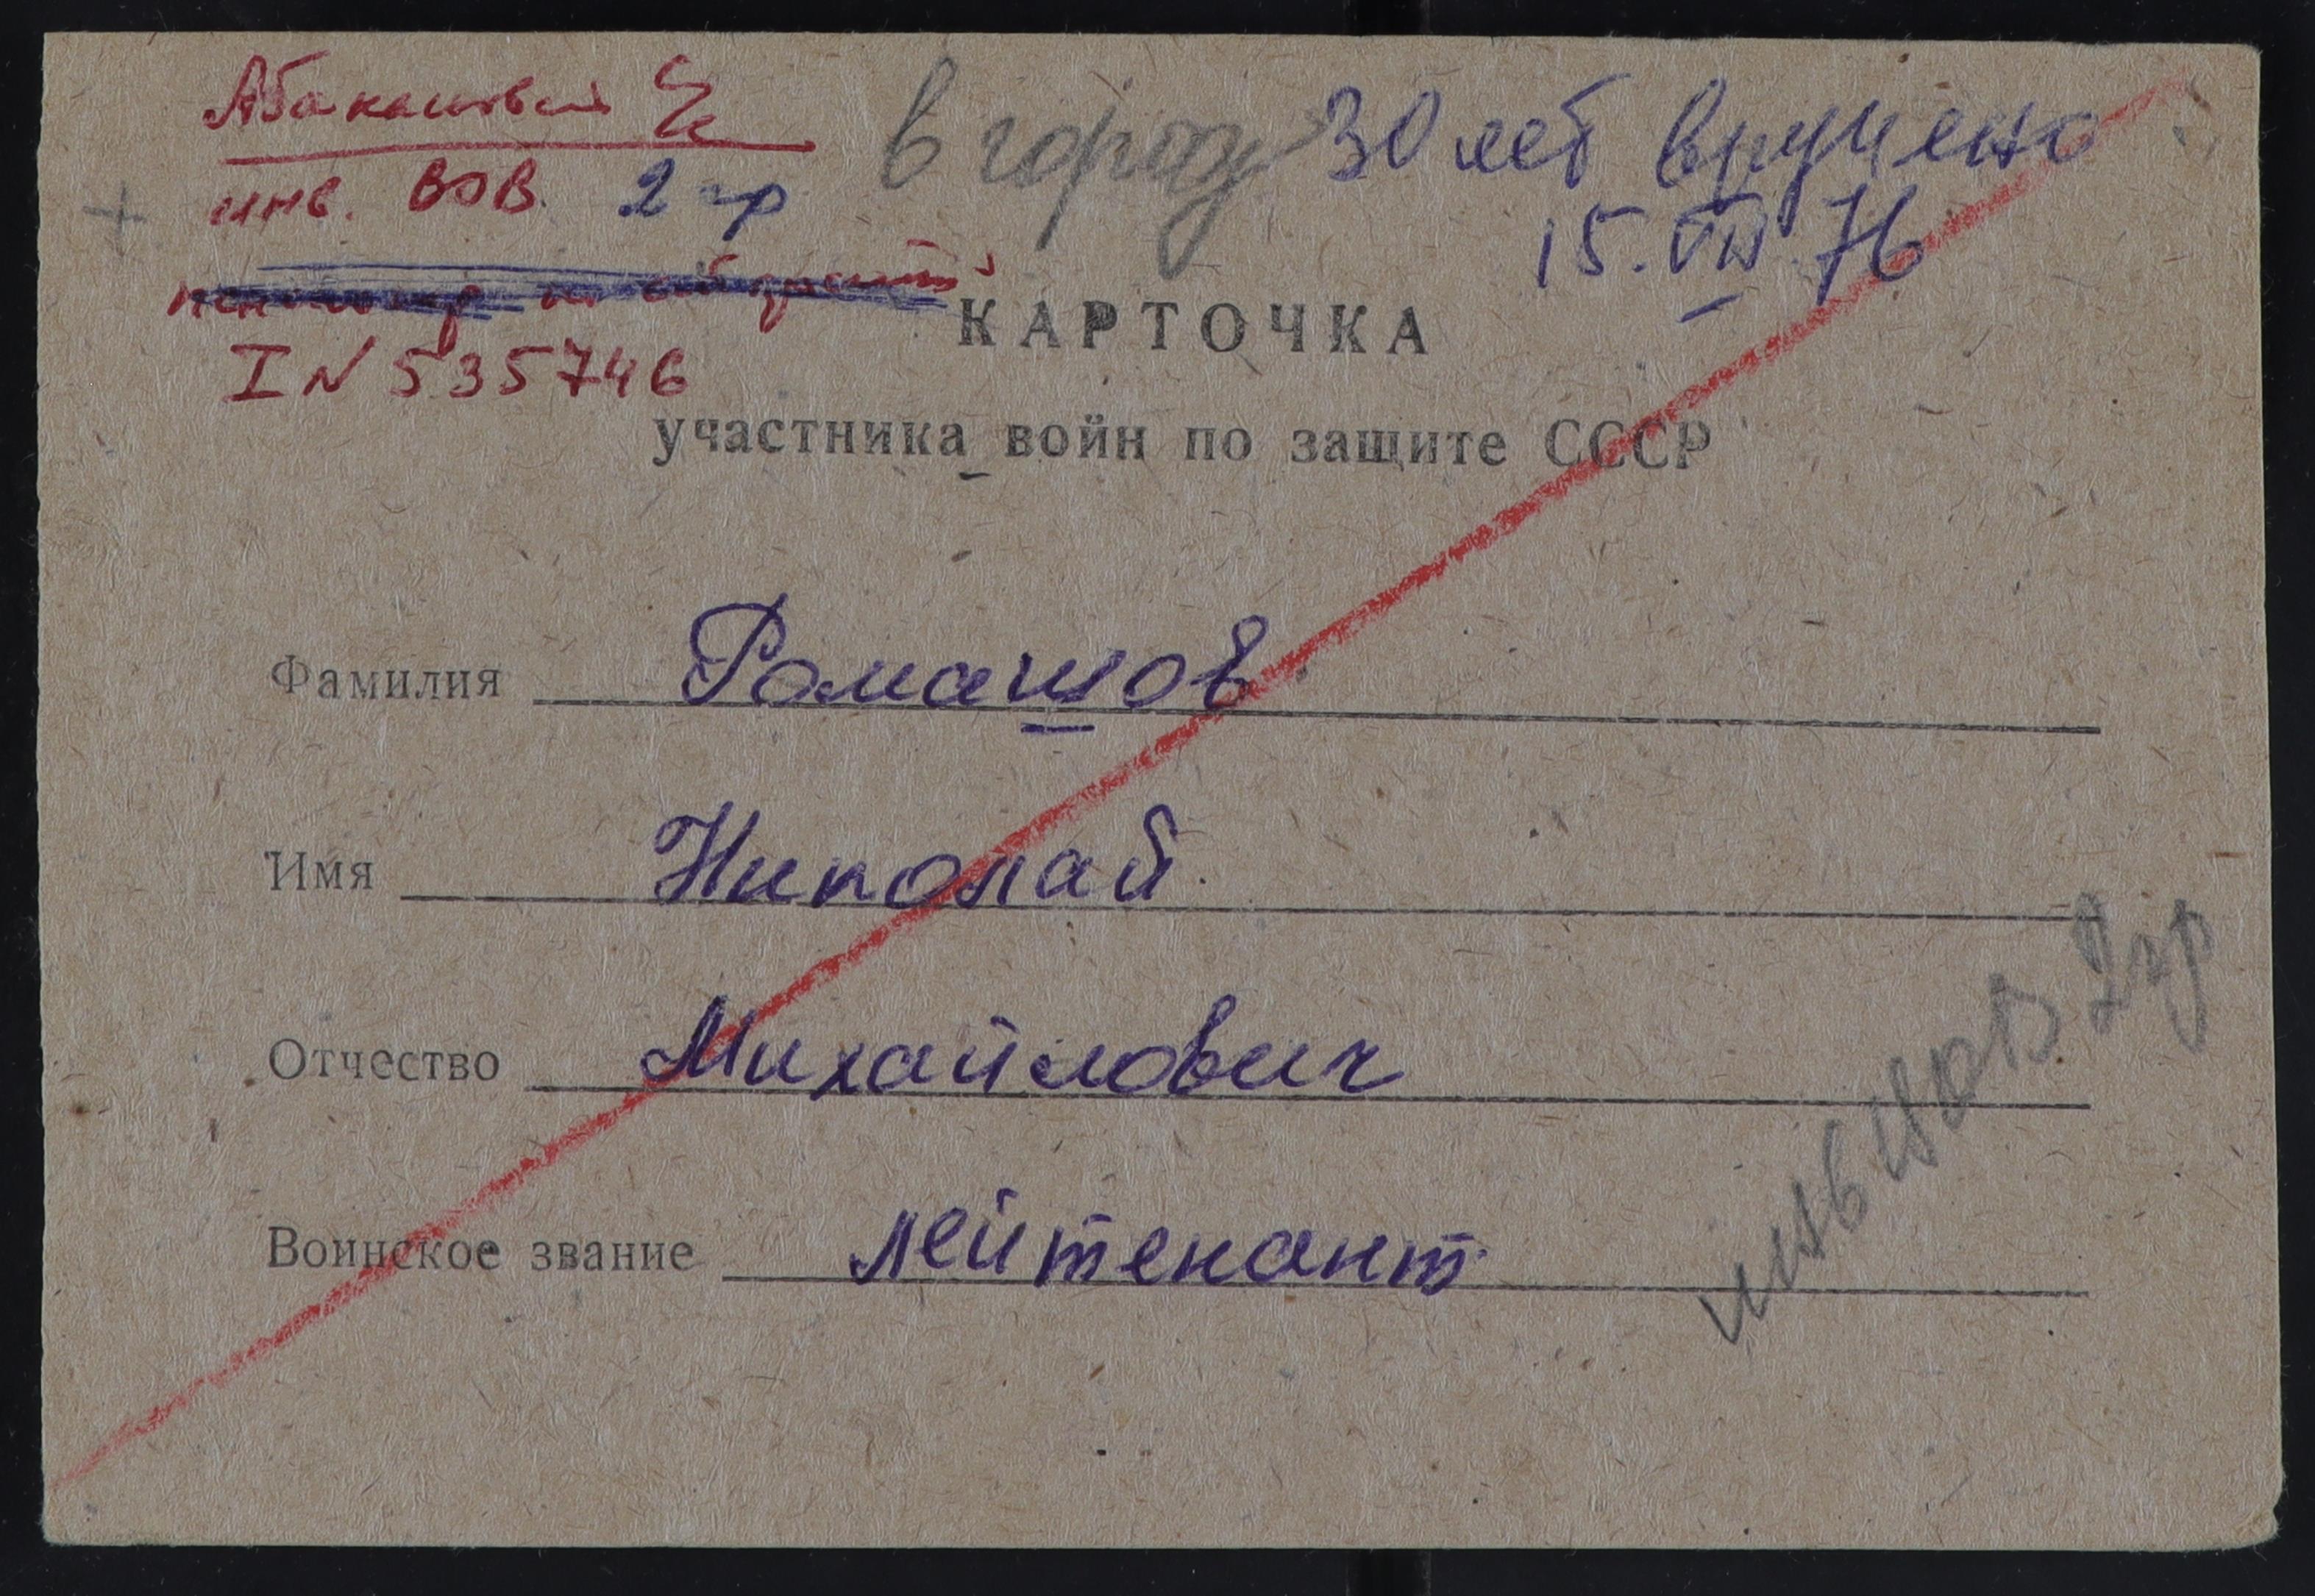 в город 30 лет вручено
инв. ВОВ. 2 гр
15.VII 76
I N 535746
КАРТОЧКА
участника войн по защите СССР
Фамилия Ромашов
Имя Николай
Отчество Михайлович
Воинское звание лейтенант
2 гр